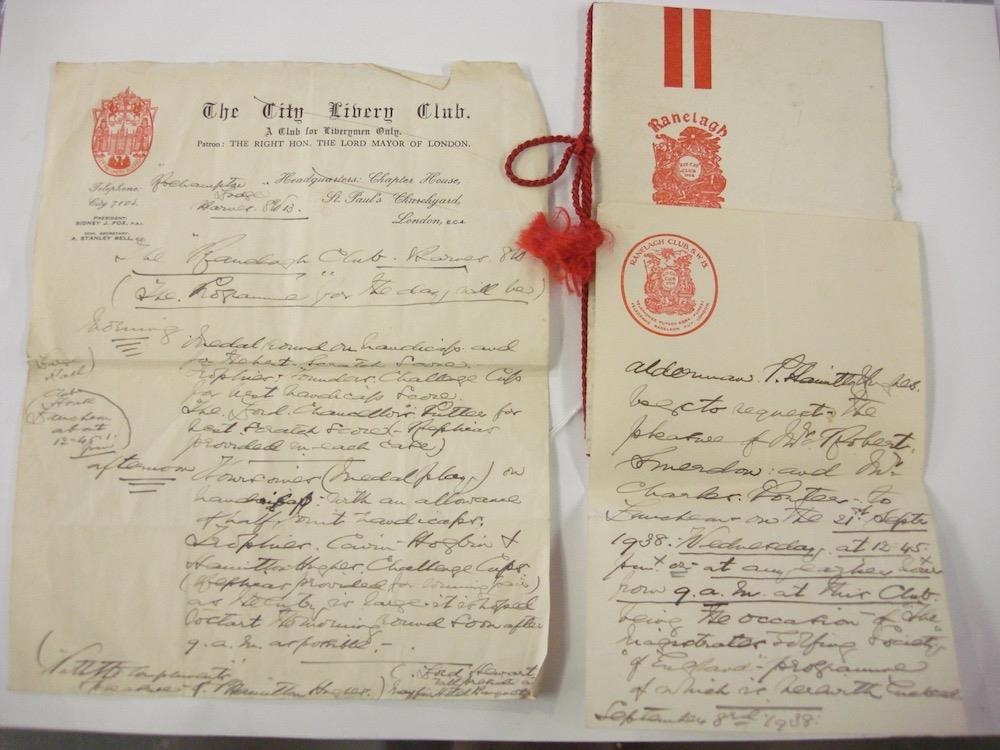 The City Livery Club.
A Club for Liverymen Only.
Patron: THE RIGHT HON. THE LORD MAYOR OF LONDON.
Telephone:
City 7104.
Roehampton
Lodge
Barnes. SW 13.
Headquarters: Chapter House,
St. Paul's Churchyard,
London, E.C.4
PRESIDENT:
SIDNEY J. FOX,
HON. SECRETARY:
A. STANLEY BELL,
The Ranelagh Club. Barnes SW
(The Programme for the day will be)
Morning
Medal round on handicap and
for the best Scratch Score.
Trophies. Founders. Challenge Cup
for best handicap Score.
The Lord Chancellor's Putter for
best Scratch Score - (Replicas
provided in each case)
Club
House
Luncheon
about
12-45
pm
afternoon
Foursomes (Medal play) on
handicap: with an allowance
of half joint handicaps.
Trophies. Hogbin &
Hamilton Hughes. Challenge Cups
(Replicas provided for winning pair)
as the entry is large it is hoped
to start the morning round soon after
9. a. m. as possible. -
(With the compliments
of P. Hamilton Hughes.)
Lord Hewart
will preside
Ranelagh
RANELAGH CLUB, S.W.13
alderman P. Hamilton Hughes.
begs to request - the
pleasure of Mr. Robert.
Smeardon: and Mr.
Charles. - to
Luncheon - on the 21st Septr
1938: Wednesday. at 12-45.
pm. or - at any earlier hour
from 9. a. m. at this Club.
being the occasion of "the
Magistrates Golfing Society
of England" - programme
of which is herewith Enclosed
September 3rd 1938: